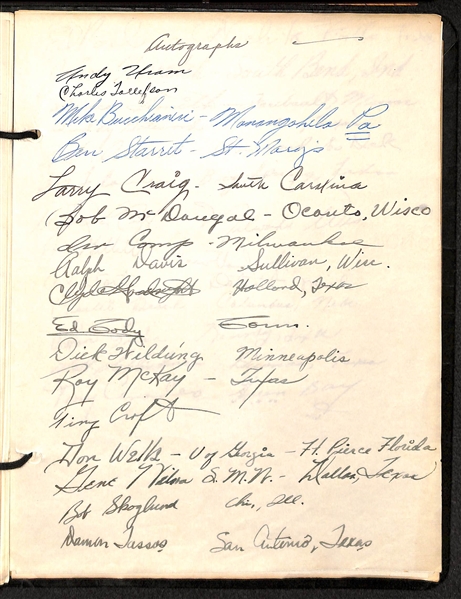 Autographs
Andy Uram
Charles Tollefson
Mike Bucchianeri - Monongahela Pa
Ben Starret - St. Mary's
Larry Craig - South Carolina
Bob McDougal - Oconto, Wisco
Comp - Milwaukee
Ralph Davis Sullivan, Wisc.
Clyde Goodnight Holland, Texas
Ed Gody Conn.
Dick Wilding Minneapolis
Roy McKay - Texas
Tiny Croft
Don Wells - U of Georgia - Ft. Pierce Florida
Gene Wilson S.M.U. - Dallas, Texas
Bob Skoglund Chi, Ill.
Damon Tassos San Antonio, Texas